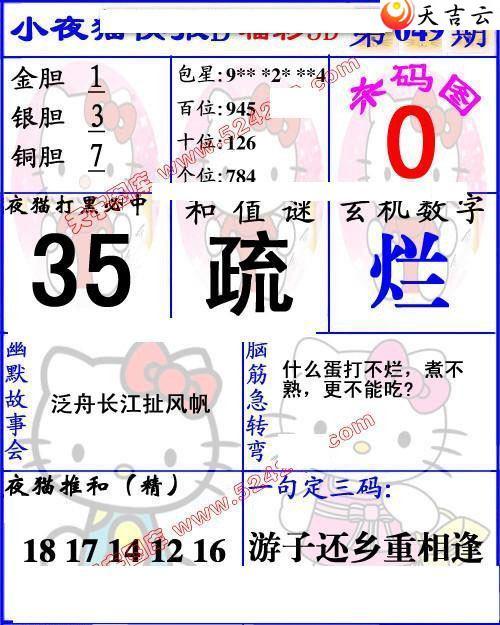 天吉云
小夜猫快报D 福彩3D 第049期
金胆 1
银胆 3
铜胆 7
包星:9** *2* **4
百位:945
十位:126
个位:784
杀码图
0
夜猫打黑必中
35
和值谜
疏
玄机数字
烂
幽默故事会
泛舟长江扯风帆
脑筋急转弯
什么蛋打不烂，煮不
熟，更不能吃?
夜猫推和（精）
18 17 14 12 16
一句定三码:
游子还乡重相逢